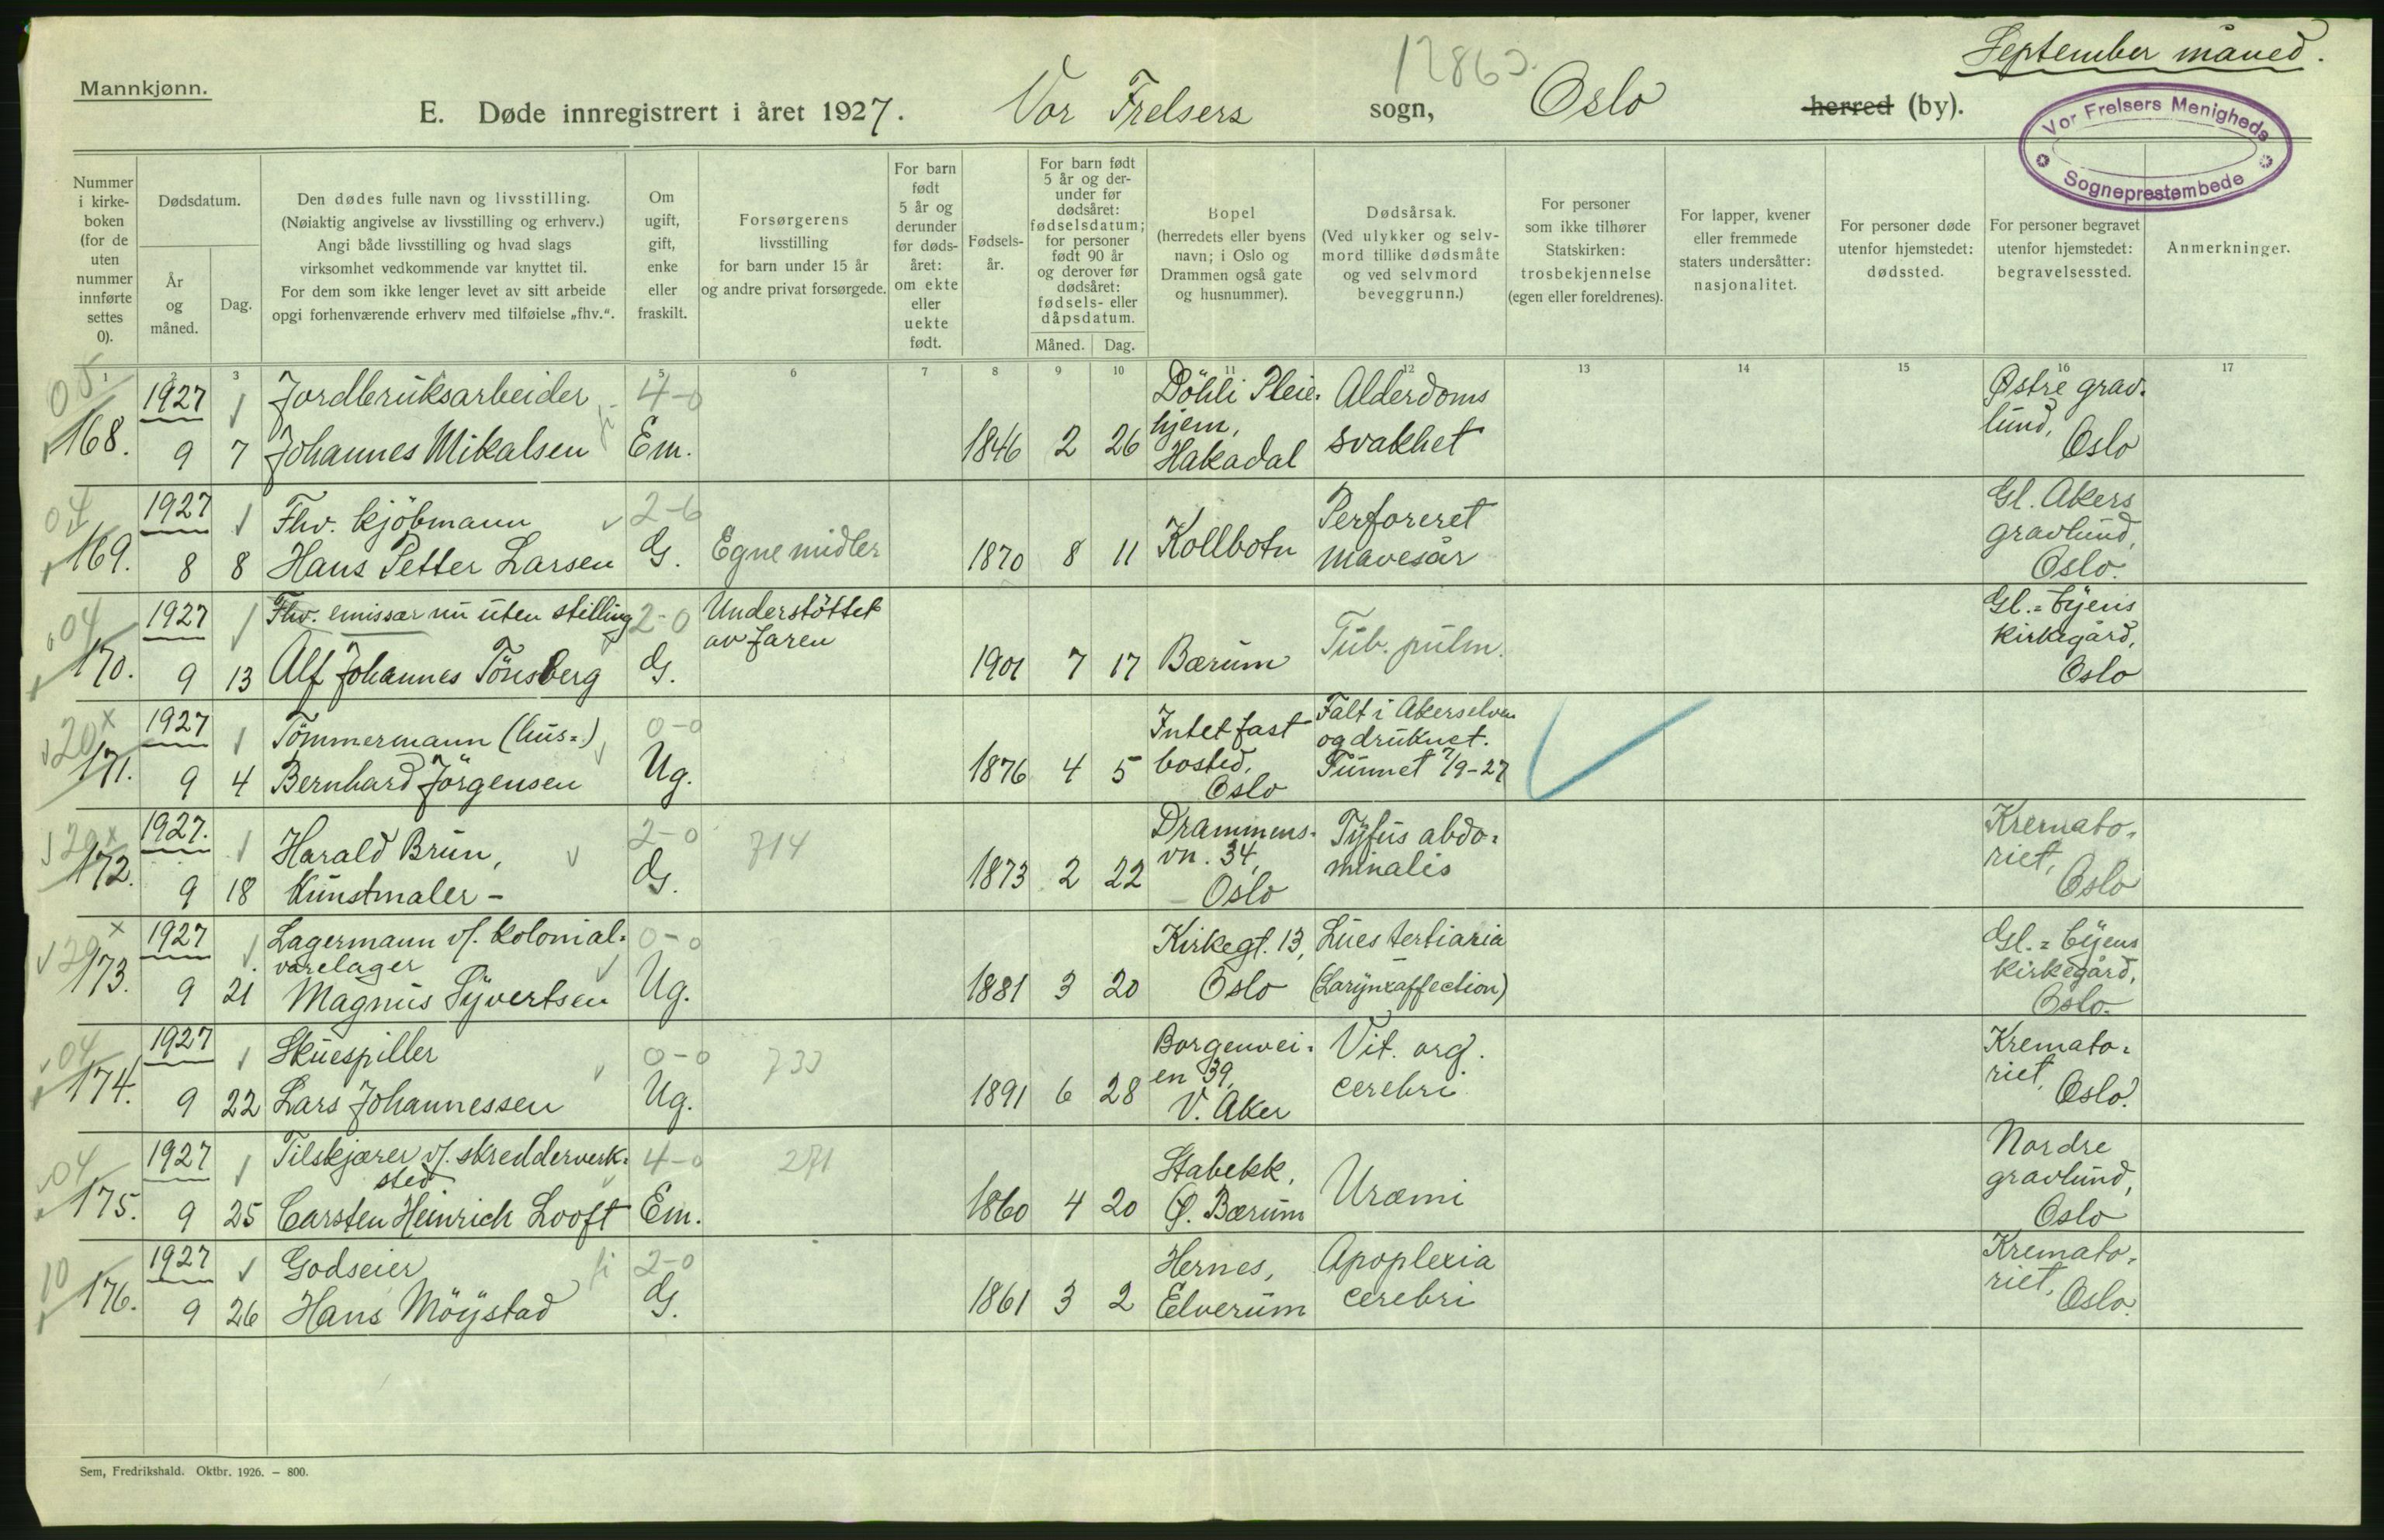 September måned.
Mannkjønn.
12863.
E. Døde innregistrert i året 1927. Vor Frelsers sogn, Oslo herred (by).
Vor Frelsers Menigheds
Sogneprestembede
Nummer i kirke-boken (for de uten nummer innførte settes 0).
Dødsdatum.
År og måned.
Dag.
Den dødes fulle navn og livsstilling.
(Nøiaktig angivelse av livsstilling og erhverv.)
Angi både livsstilling og hvad slags
virksomhet vedkommende var knyttet til.
For dem som ikke lenger levet av sitt arbeide
opgi forhenværende erhverv med tilføielse „fhv.“.
Om ugift, gift, enke eller fraskilt.
Forsørgerens
livsstilling
for barn under 15 år
og andre privat forsørgede.
For barn født 5 år og derunder før døds-året: om ekte eller uekte født.
Fødsels-år.
For barn født 5 år og der-under før dødsåret: fødselsdatum; for personer født 90 år og derover før dødsåret: fødsels- eller dåpsdatum.
Måned.
Dag.
Bopel
(herredets eller byens
navn; i Oslo og
Drammen også gate
og husnummer).
Dødsårsak.
(Ved ulykker og selv-
mord tillike dødsmåte
og ved selvmord
beveggrunn.)
For personer
som ikke tilhører
Statskirken:
trosbekjennelse
(egen eller foreldrenes).
For lapper, kvener
eller fremmede
staters undersåtter:
nasjonalitet.
For personer døde
utenfor hjemstedet:
dødssted.
For personer begravet
utenfor hjemstedet:
begravelsessted.
Anmerkninger.
1 2 3 5 6 7 8 9 10 11 12 13 14 15 16 17
1927 Jordbruksarbeider 4-0 Döhli Pleie- Alderdoms Østre grav-
168. 9 7 Johannes Mikalsen Em. 1846 2 26 hjem, svakhet lund,
Hakadal Oslo
04 1927 Fhv. kjöbmann 2-6 Perforeret Gl. Akers
169. 8 8 Hans Petter Larsen G. Egne midler 1870 8 11 Kollbotn mavesår gravlund,
Oslo.
04 1927 Fhv. emissær nu uten stilling 2-0 Understöttet Gl.= Byens
av faren kirkegård,
170. 9 13 Alf Johannes Tönsberg G. 1901 7 17 Bærum Tub. pulm. Oslo
20 x 1927 Tömmermann (hus=) 0-0 Intet fast Falt i Akerselven
og druknet.
171. 9 4 Bernhard Jörgensen Ug. 1876 4 5 bosted, Funnet 7/9-27
Oslo
20 x 1927. Harald Brun, 2-0 714 Drammens- Tyfus abdo- Kremato-
172. 9 18 Kunstmaler - G. 1873 2 22 vn. 34, minalis riet,
Oslo Oslo
20 x 1927 Lagermann v/. kolonial- 0-0 Kirkegt. 13, Lues tertiaria Gl.= Byens
varelager kirkegård,
173. 9 21 Magnus Syvertsen Ug. 1881 3 20 Oslo (Larynxaffection) Oslo.
04 1927 Skuespiller 0-0 733 Borgenvei- Vit. org. Kremato-
174. 9 22 Lars Johannessen Ug. 1891 6 28 en 39, cerebri riet,
V. Aker Oslo.
04 1927 Tilskjærer v/. skredderverk- 4-0 271 Stabekk, Nordre
sted gravlund,
175. 9 25 Carsten Heinrich Looft Em. 1860 4 20 Ø. Bærum Uræmi Oslo
10 1927 Godseier fi 2-0 Hernes, Apoplexia Kremato-
176. 9 26 Hans Möystad G. 1861 3 2 Elverum cerebri riet,
Oslo.
Sem, Fredrikshald. Oktbr. 1926. – 800.